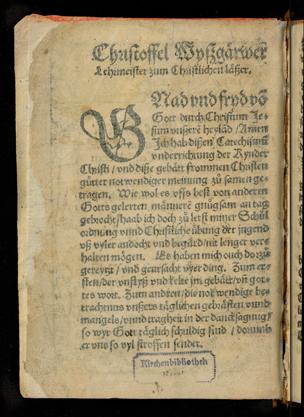 Christoffel Wyßgärwer
Lehrmeister zum Christlichen läßer.
GNad vnd fryd võ
Gott durch Christum Je-
sum vnserē heyläd / Amen
Ich hab dißen Catechismū
vnderrichtung der Kynder
Christi / vnd diße gebätt frommen Christen
gütter not wendiger meinung zů samen ge-
tragen. Wie wol es vffs best von anderen
Gotts gelerten männerē gnůgsam an tag
gebrocht / haab ich doch zů letst miner Schůl
ordnung vnnd Christliche übung der jugend
vß yler andocht vnd begärd / nit lenger ver-
halten mögen. Es haben mich ouch do zů
gereytzt / vnd geursacht vyer ding. Zum er-
sten / der vnflyß vnd kelte im gebätt / vñ got-
tes wort. Zum andren / die not wendige be-
trachtung vnsers täglichen gebrästen vnnd
mangels / vnnd tragheit in der dancksagung /
so wyr Gott täglich schuldig sind / domitt
er vns so vyl stroffen sendet.
Kirchenbibliothek